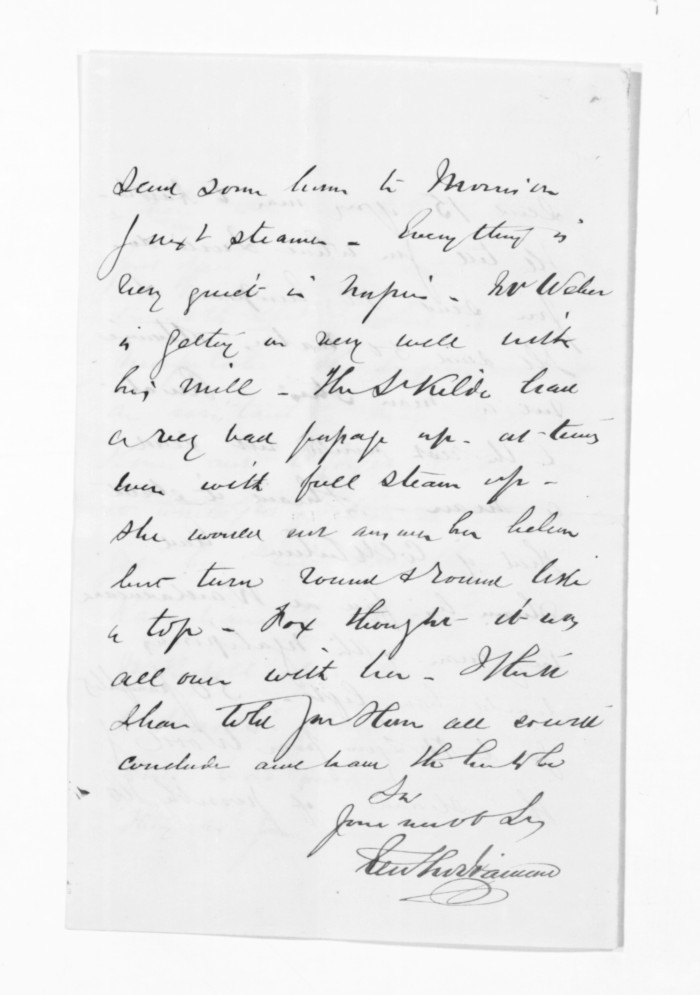 send some home to Morrison
p next steamer - Everything is
very quiet in Napier - Mr Weber
is getting on very well with
his mill - The St Kilda had
a very bad passage up - at times
even with full steam up -
she would not answer her helm
but turn round & round like
a top - Fox thought it was
all over with her - I think
I have told you all so will
conclude and have the honor to be
Sir
Your most